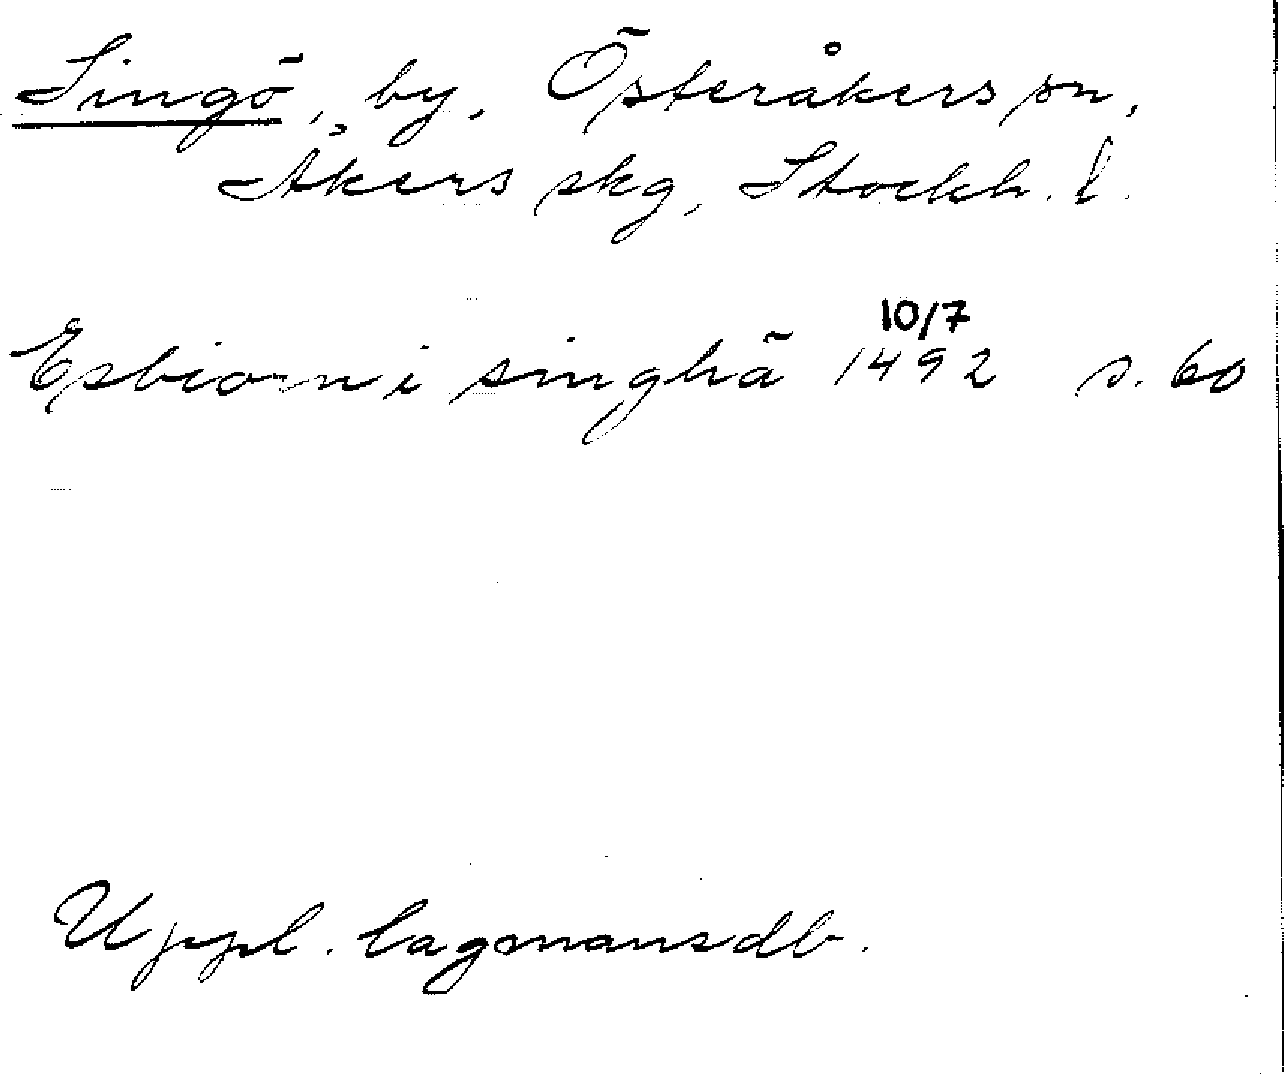 Singö, by, Österåkers sn,
Åkers skg, Stockh. l.
10/7
Esbiorn i singhä 1492 s. 60
Uppl. lagmansdb.